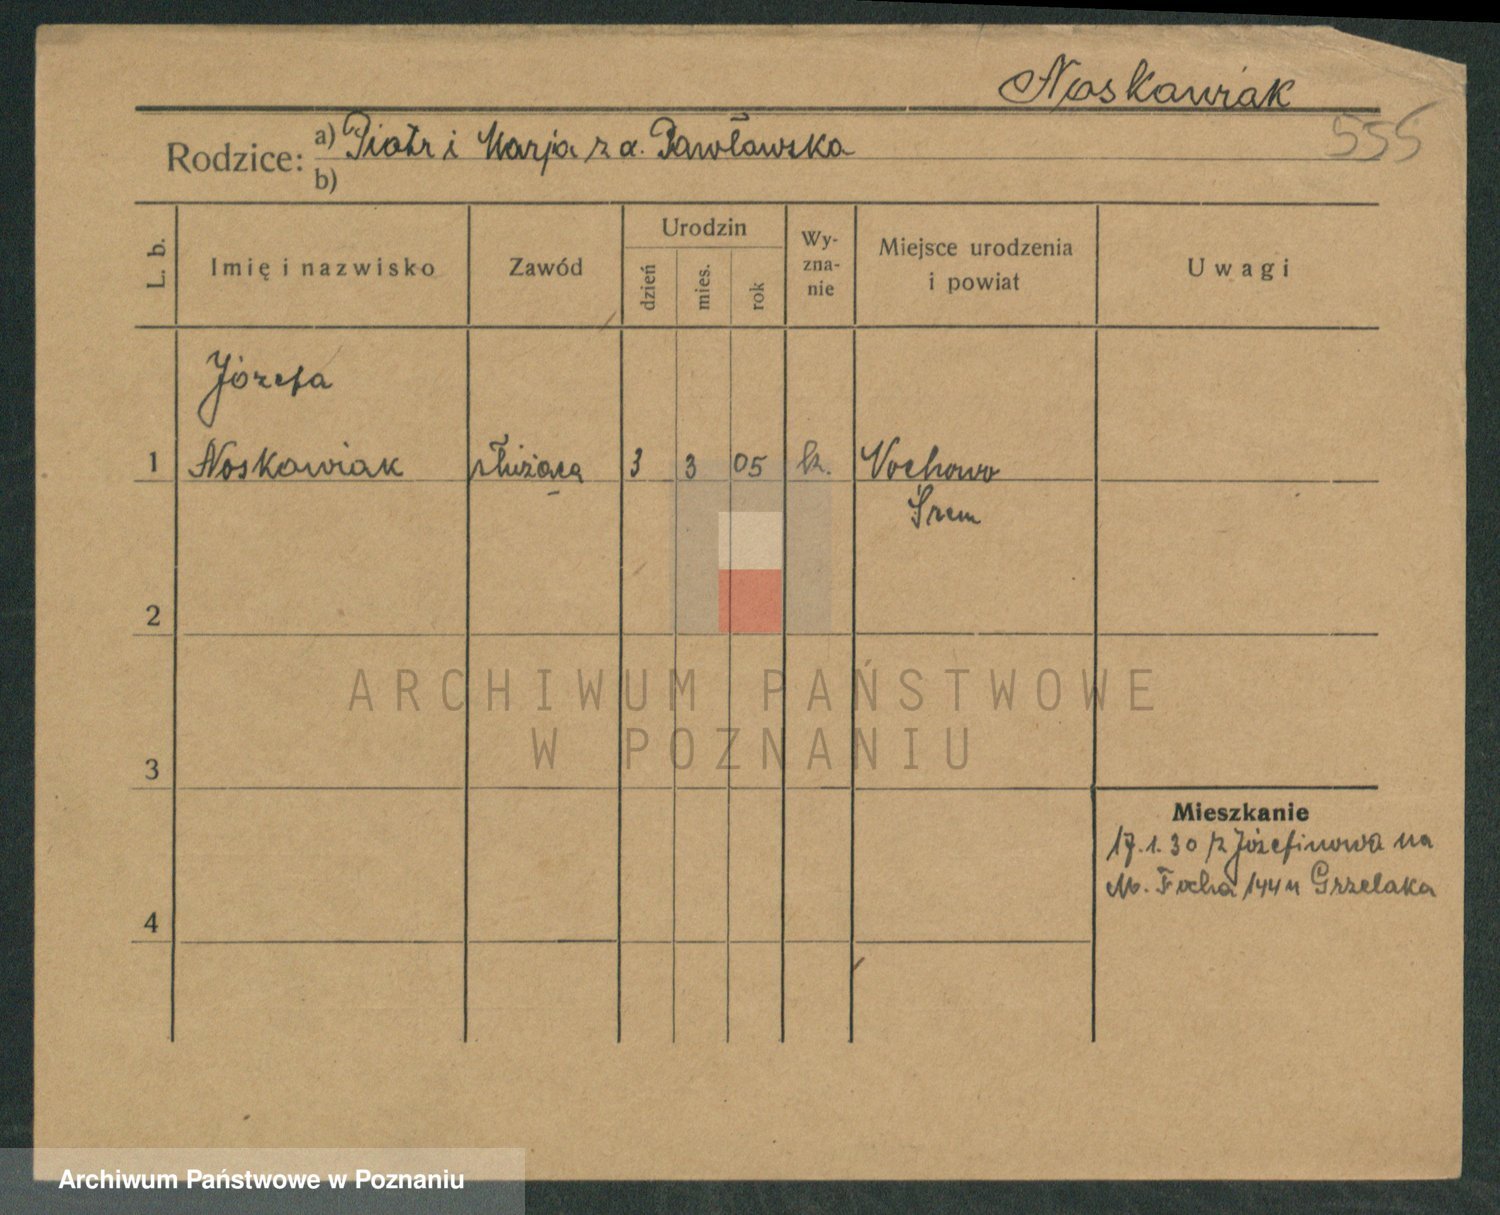 Noskawiak
555
Rodzice: a) Piotr i Marja z d. Pawławska
b)
L. b.
Imię i nazwisko
Zawód
Urodzin
dzień
mies.
rok
Wy-
zna-
nie
Miejsce urodzenia
i powiat
Uwagi
Józefa
1 Noskawiak służąca 3 3 05 k. Nochowo
Śrem
2
3
4
Mieszkanie
17.1.30 z Józefinowa na
M. Focha 144 u Grzelaka
ARCHIWUM PAŃSTWOWE
W POZNANIU
Archiwum Państwowe w Poznaniu